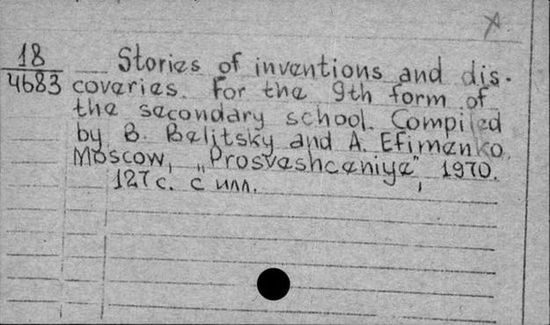 18
4683
Stories of inventions and dis-
coveries. For the 9th form of
the secondary school. Compiled
by B. Belitsky and A. Efimenko.
Moscow, „Prosveshcheniye", 1970.
127 с. с илл.